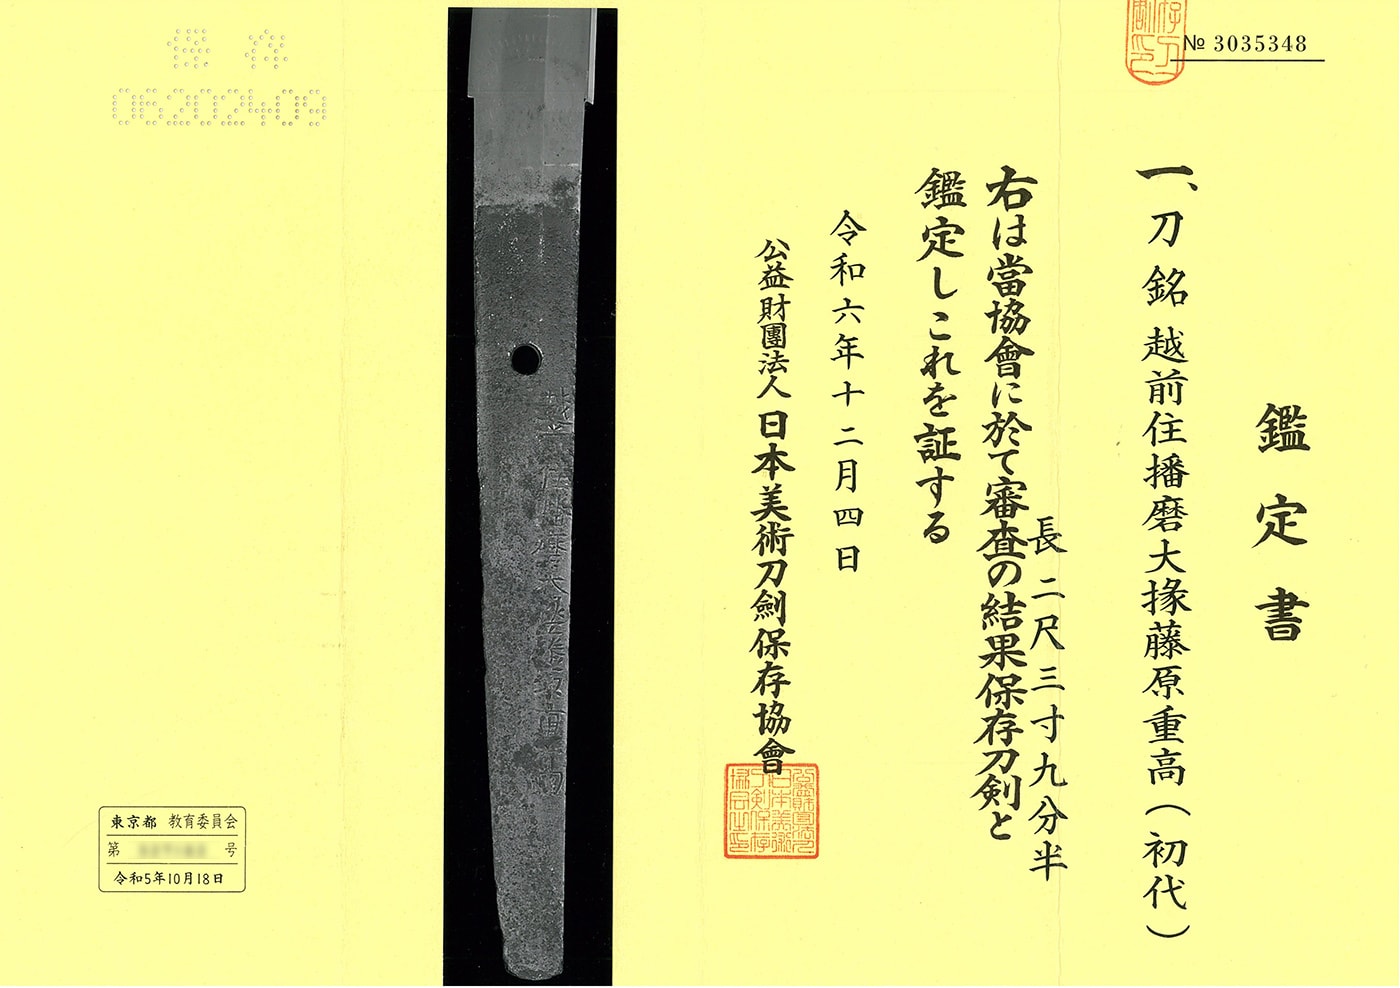 № 3035348
鑑定書
一、刀 銘 越前住播磨大掾藤原重高(初代)
長 二尺三寸九分半
右は當協會に於て審査の結果保存刀剣と
鑑定しこれを証する
令和六年十二月四日
公益財團法人 日本美術刀劍保存協會
保存
06202409
越前住播磨大掾藤原重高
東京都 教育委員会
第 号
令和5年10月18日